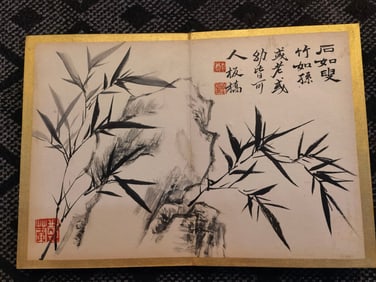 石如叟
竹如孫
或老或
幼皆可
人板橋